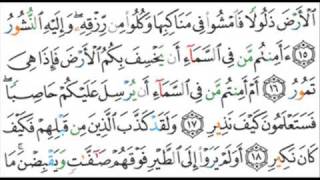 ٱلْأَرْضَ ذَلُولًا فَٱمْشُوا۟ فِى مَنَاكِبِهَا وَكُلُوا۟ مِن رِّزْقِهِۦ ۖ وَإِلَيْهِ ٱلنُّشُورُ
١٥ ءَأَمِنتُم مَّن فِى ٱلسَّمَآءِ أَن يَخْسِفَ بِكُمُ ٱلْأَرْضَ فَإِذَا هِىَ
تَمُورُ ١٦ أَمْ أَمِنتُم مَّن فِى ٱلسَّمَآءِ أَن يُرْسِلَ عَلَيْكُمْ حَاصِبًا ۖ
فَسَتَعْلَمُونَ كَيْفَ نَذِيرِ ١٧ وَلَقَدْ كَذَّبَ ٱلَّذِينَ مِن قَبْلِهِمْ فَكَيْفَ
كَانَ نَكِيرِ ١٨ أَوَلَمْ يَرَوْا۟ إِلَى ٱلطَّيْرِ فَوْقَهُمْ صَٰٓفَّٰتٍ وَيَقْبِضْنَ ۚ مَا